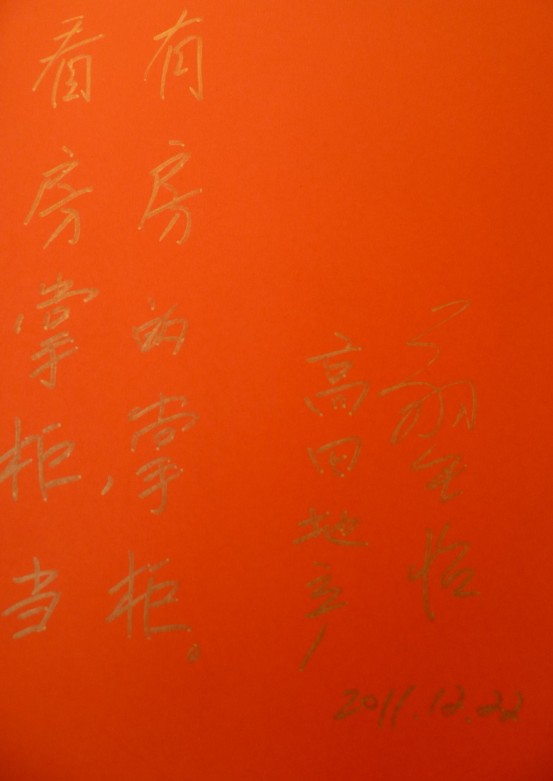 看房掌柜，当
有房的掌柜。
高田地产
2011.12.22